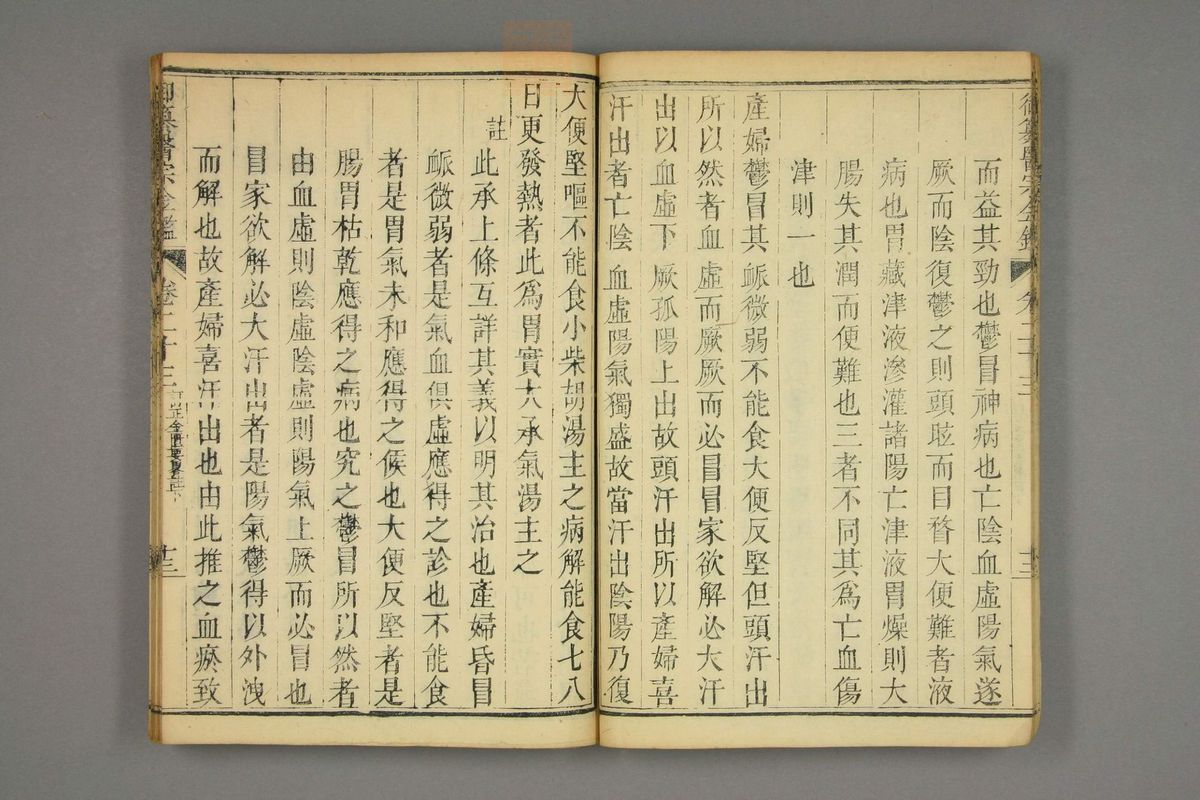 而益其勁也鬱冒神病也亡陰血虛陽氣遂
厥而陰復鬱之則頭眩而目瞀大便難者液
病也胃藏津液滲灌諸陽亡津液胃燥則大
腸失其潤而便難也三者不同其為亡血傷
津則一也
產婦鬱冒其脈微弱不能食大便反堅但頭汗出
所以然者血虛而厥厥而必冒冒家欲解必大汗
出以血虛下厥孤陽上出故頭汗出所以產婦喜
汗出者亡陰血虛陽氣獨盛故當汗出陰陽乃復
大便堅嘔不能食小柴胡湯主之病解能食七八
日更發熱者此為胃實大承氣湯主之
註此承上條互詳其義以明其治也產婦昏冒
脈微弱者是氣血俱虛應得之診也不能食
者是胃氣未和應得之候也大便反堅者是
腸胃枯乾應得之病也究之鬱冒所以然者
由血虛則陰虛陰虛則陽氣上厥而必冒也
冒家欲解必大汗出者是陽氣鬱得以外洩
而解也故產婦喜汗出也由此推之血瘀致
御纂醫宗金鑑 卷二十三 訂正金匱要畧註下 十三